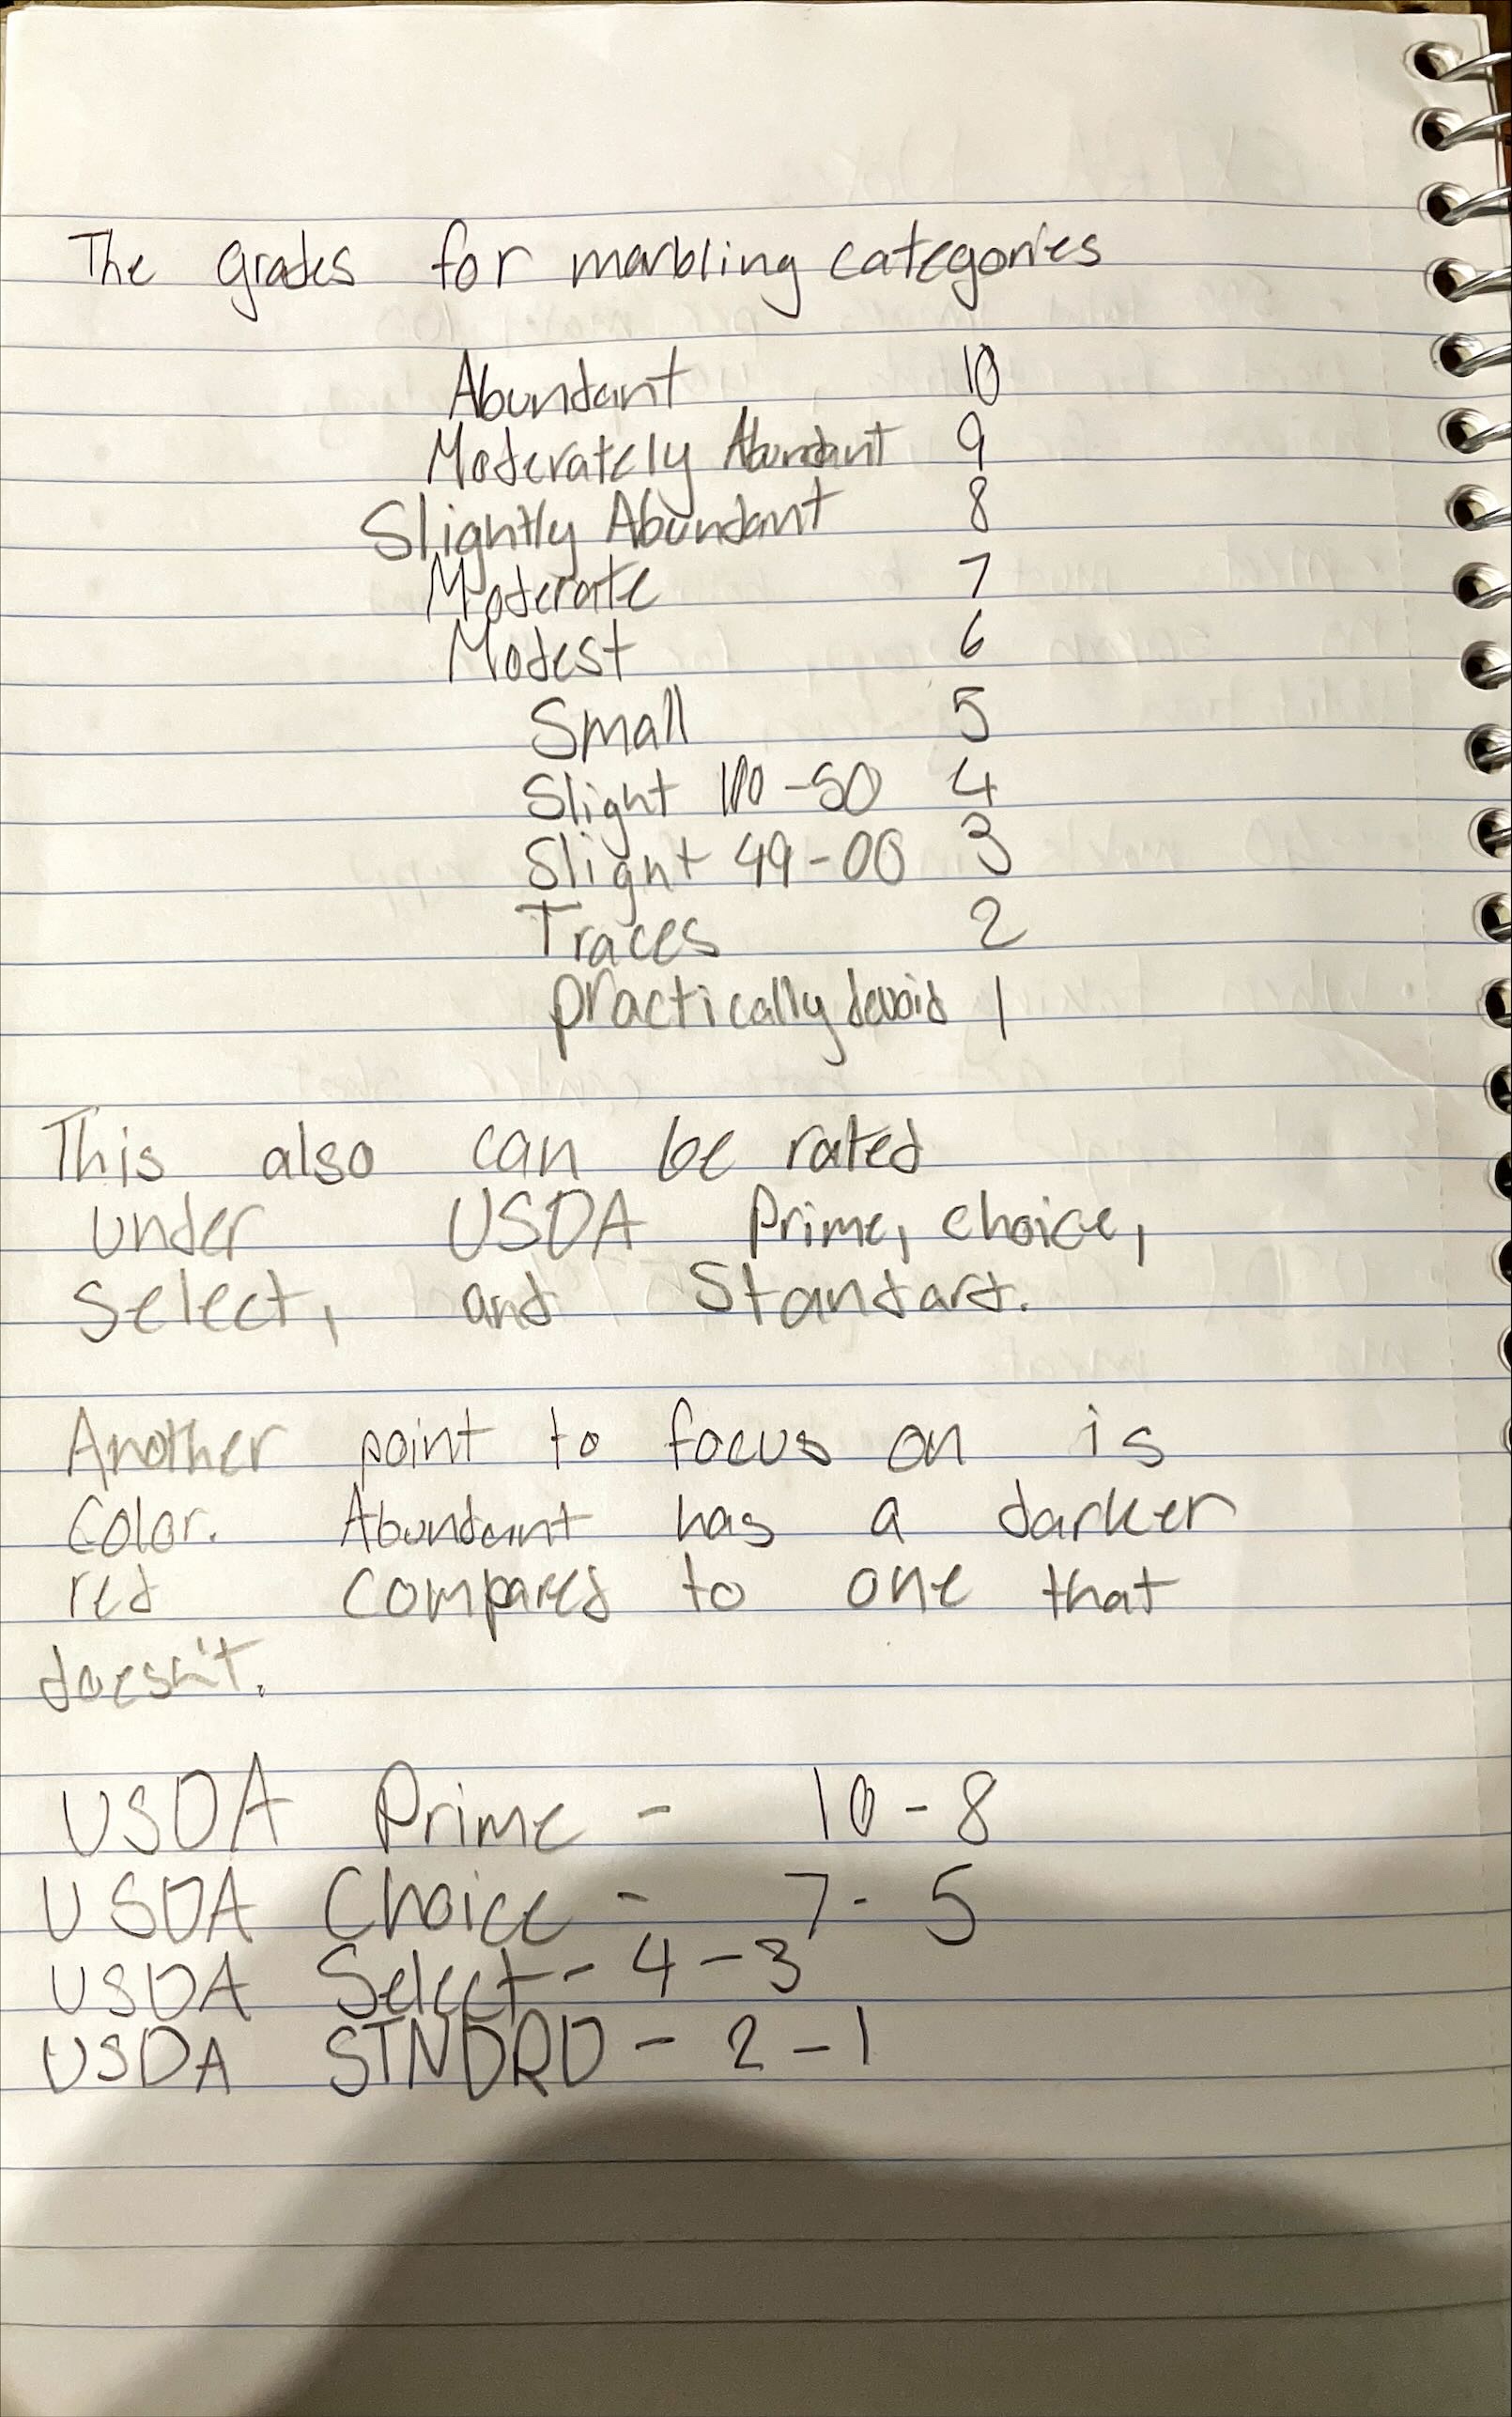 The grades for marbling categories
Abundant 10
Moderately Abundant 9
Slightly Abundant 8
Moderate 7
Modest 6
Small 5
Slight 100-50 4
Slight 49-00 3
Traces 2
practically devoid 1
This also can be rated
under USDA Prime, choice,
Select, and Standard.
Another point to focus on is
Color. Abundant has a darker
red compared to one that
doesn't.
USDA Prime - 10-8
USDA Choice - 7-5
USDA Select - 4-3
USDA STNDRD - 2-1